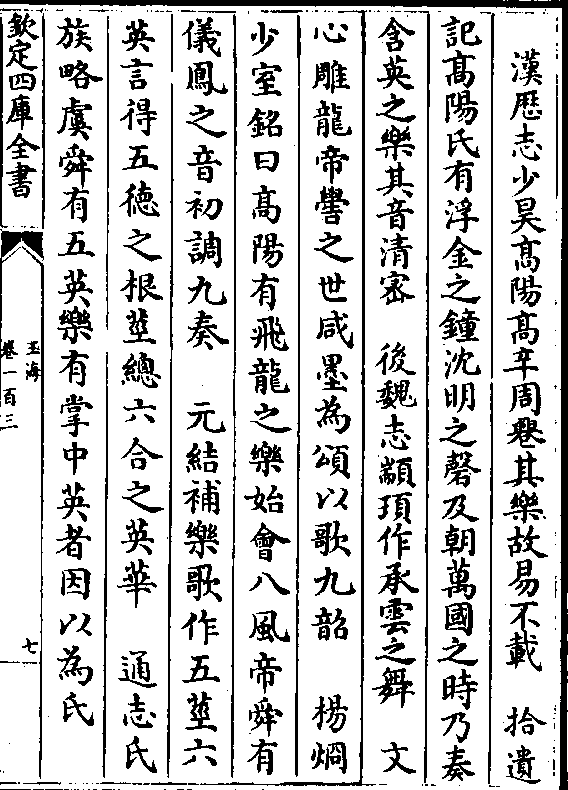 漢厯志少昊髙陽髙辛周𨗇其樂故易不載　拾遺
記髙陽氏有浮金之鐘沈明之磬及朝萬國之時乃奏
含英之樂其音清宻　後魏志顓頊作承雲之舞　文
心雕龍帝嚳之世咸墨為頌以歌九韶　楊烱
少室銘曰髙陽有飛龍之樂始會八風帝舜有
儀鳳之音初調九奏　元結補樂歌作五莖六
英言得五徳之根莖總六合之英華　通志氏
族略虞舜有五英樂有掌中英者因以為氏
欽定四庫全書
玉海
卷一百三
七